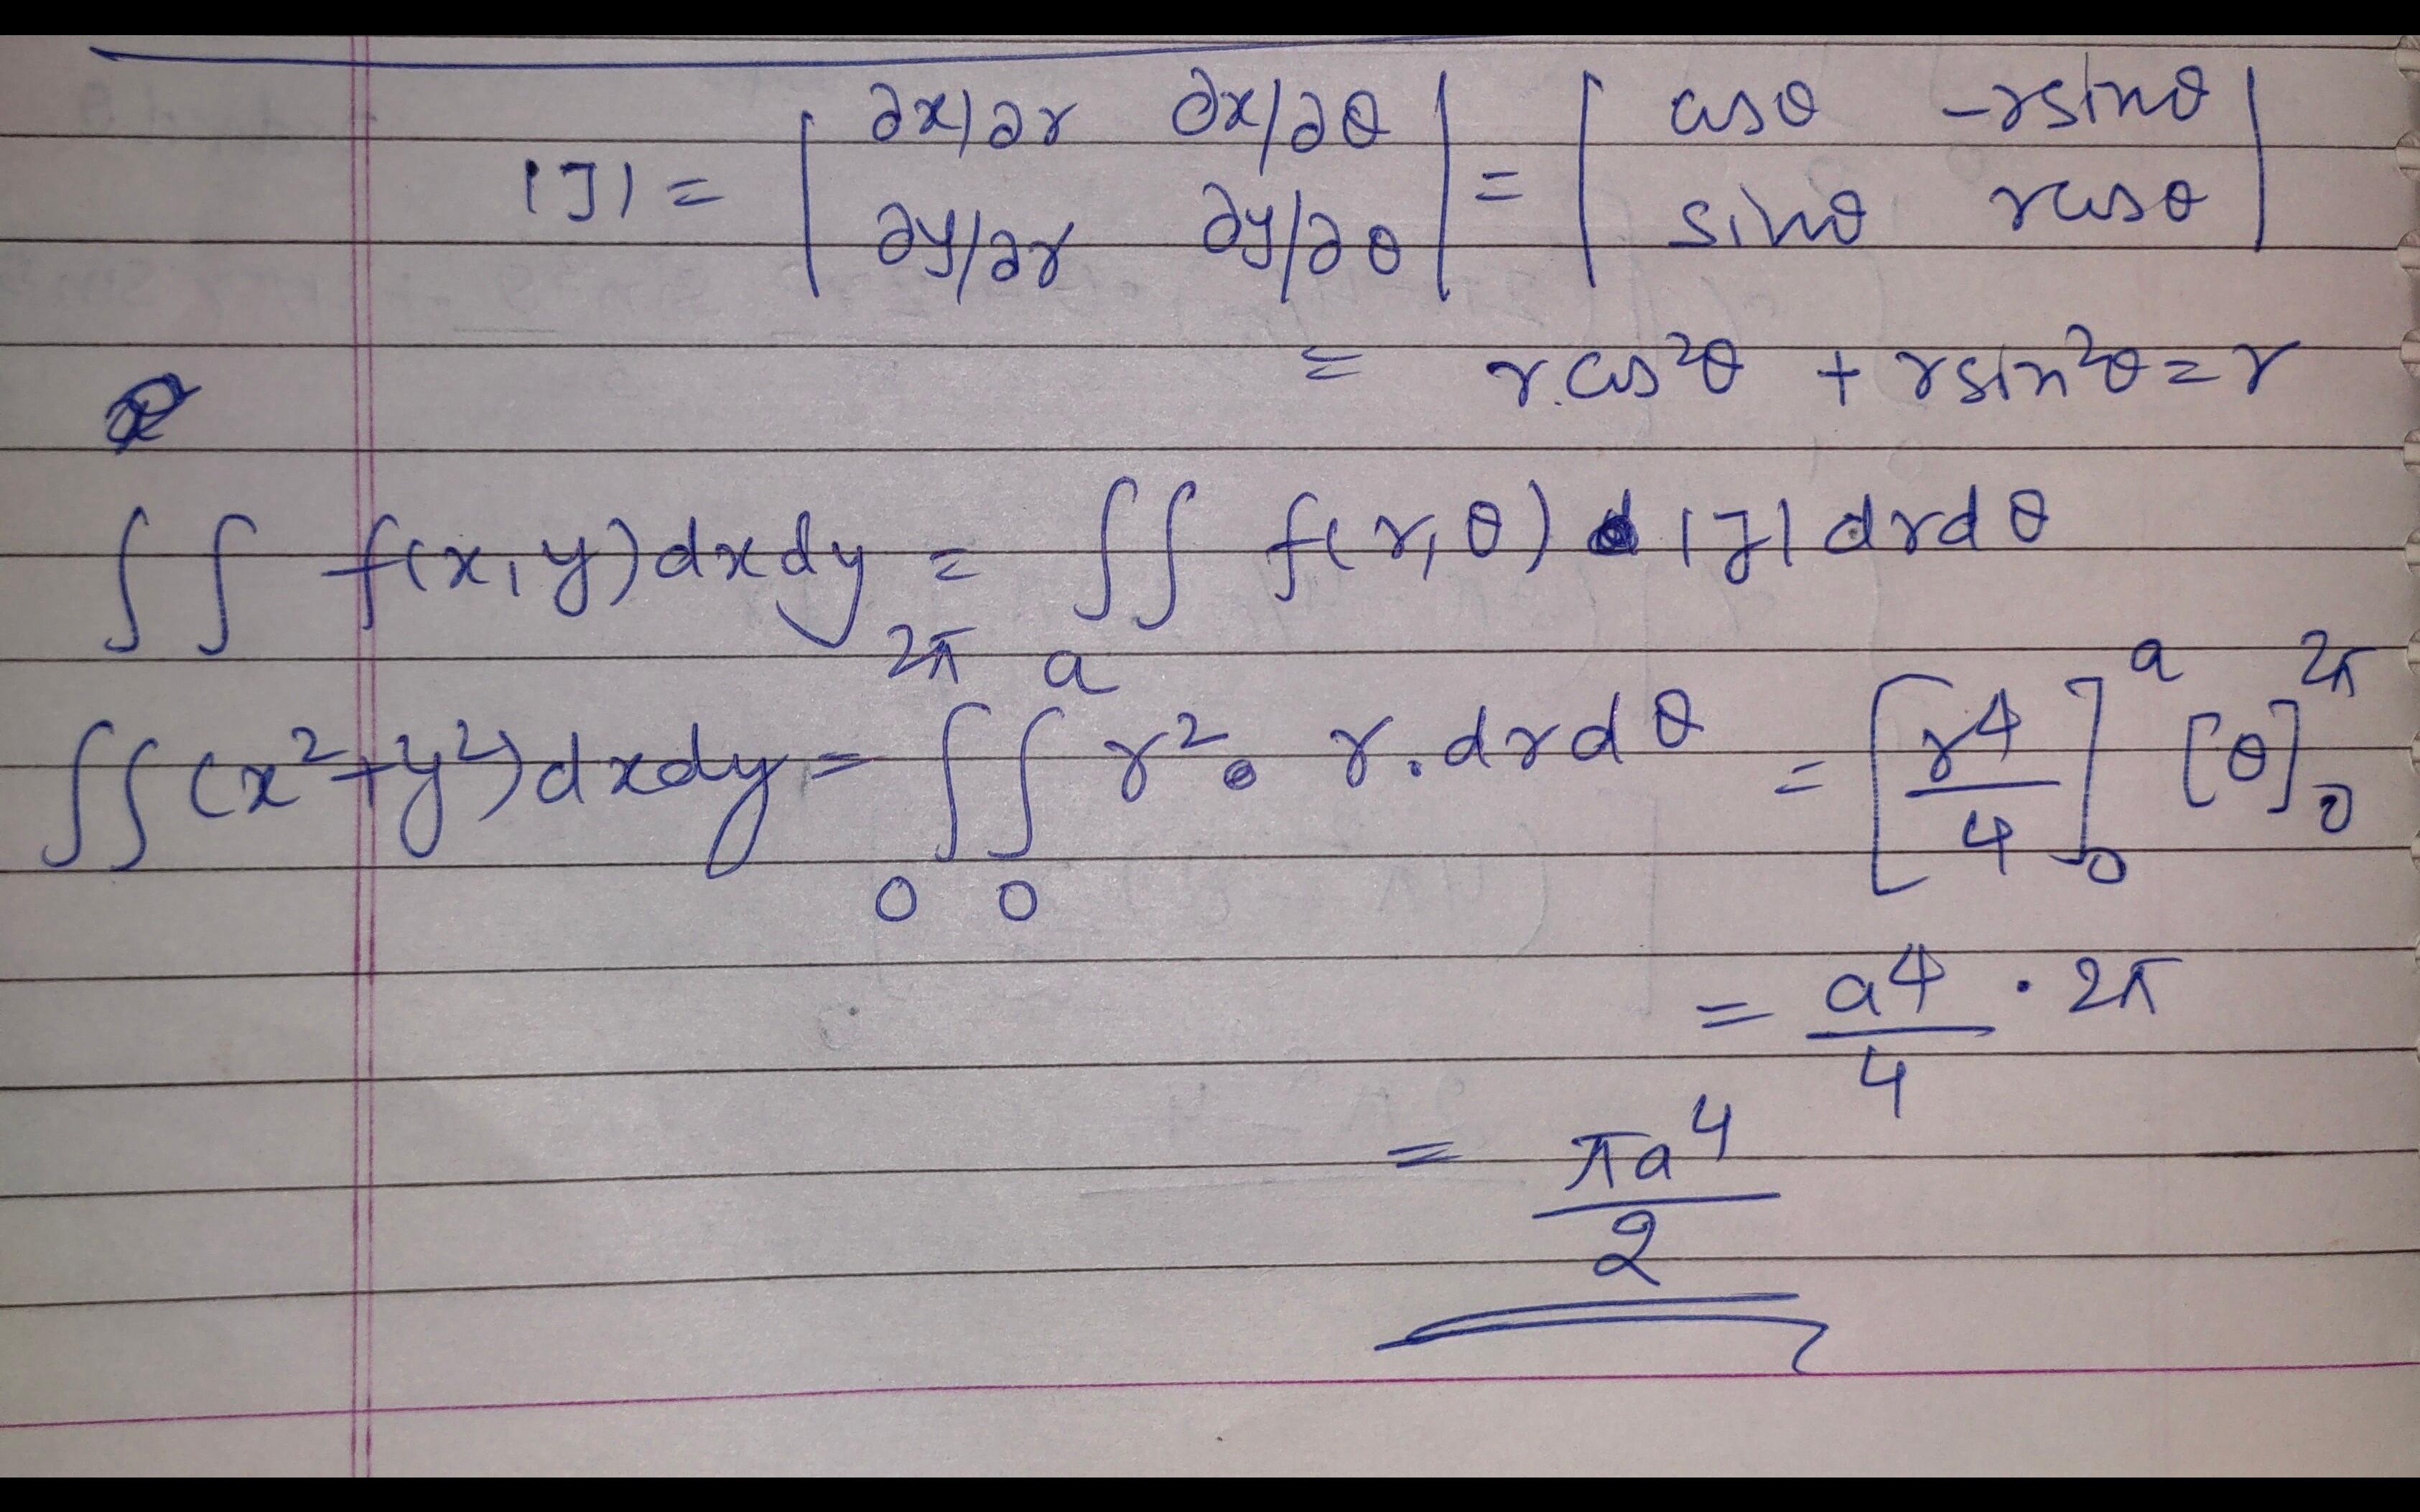 |J| = | ∂x/∂r ∂x/∂θ | = | cosθ -rsinθ |
| ∂y/∂r ∂y/∂θ | | sinθ rcosθ |
= r.cos²θ + rsin²θ = r
∫∫ f(x,y)dxdy = ∫∫ f(r,θ) |J| drdθ
∫∫(x²+y²)dxdy = ∫₀^2π ∫₀^a r². r.drdθ = [r⁴/4]₀^a [θ]₀^2π
= a⁴/4 · 2π
= πa⁴/2